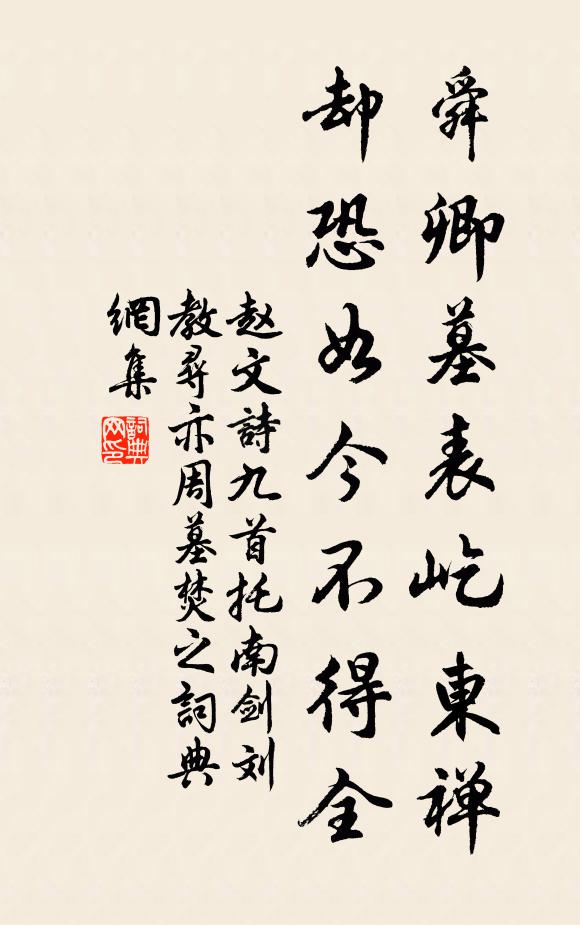 舜卿墓表屹東禅
却恐如今不得全
赵文詩九首托南劍刘
教尋亦周墓焚之詞典
網集
詞典網印